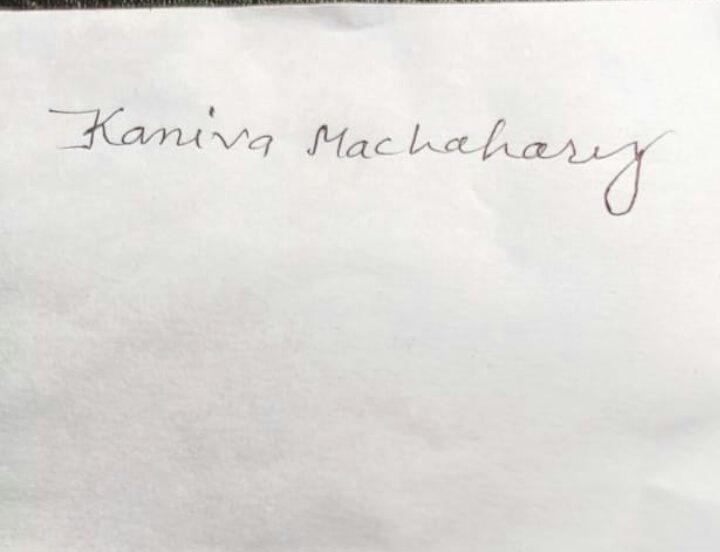 Kaniva Machahary